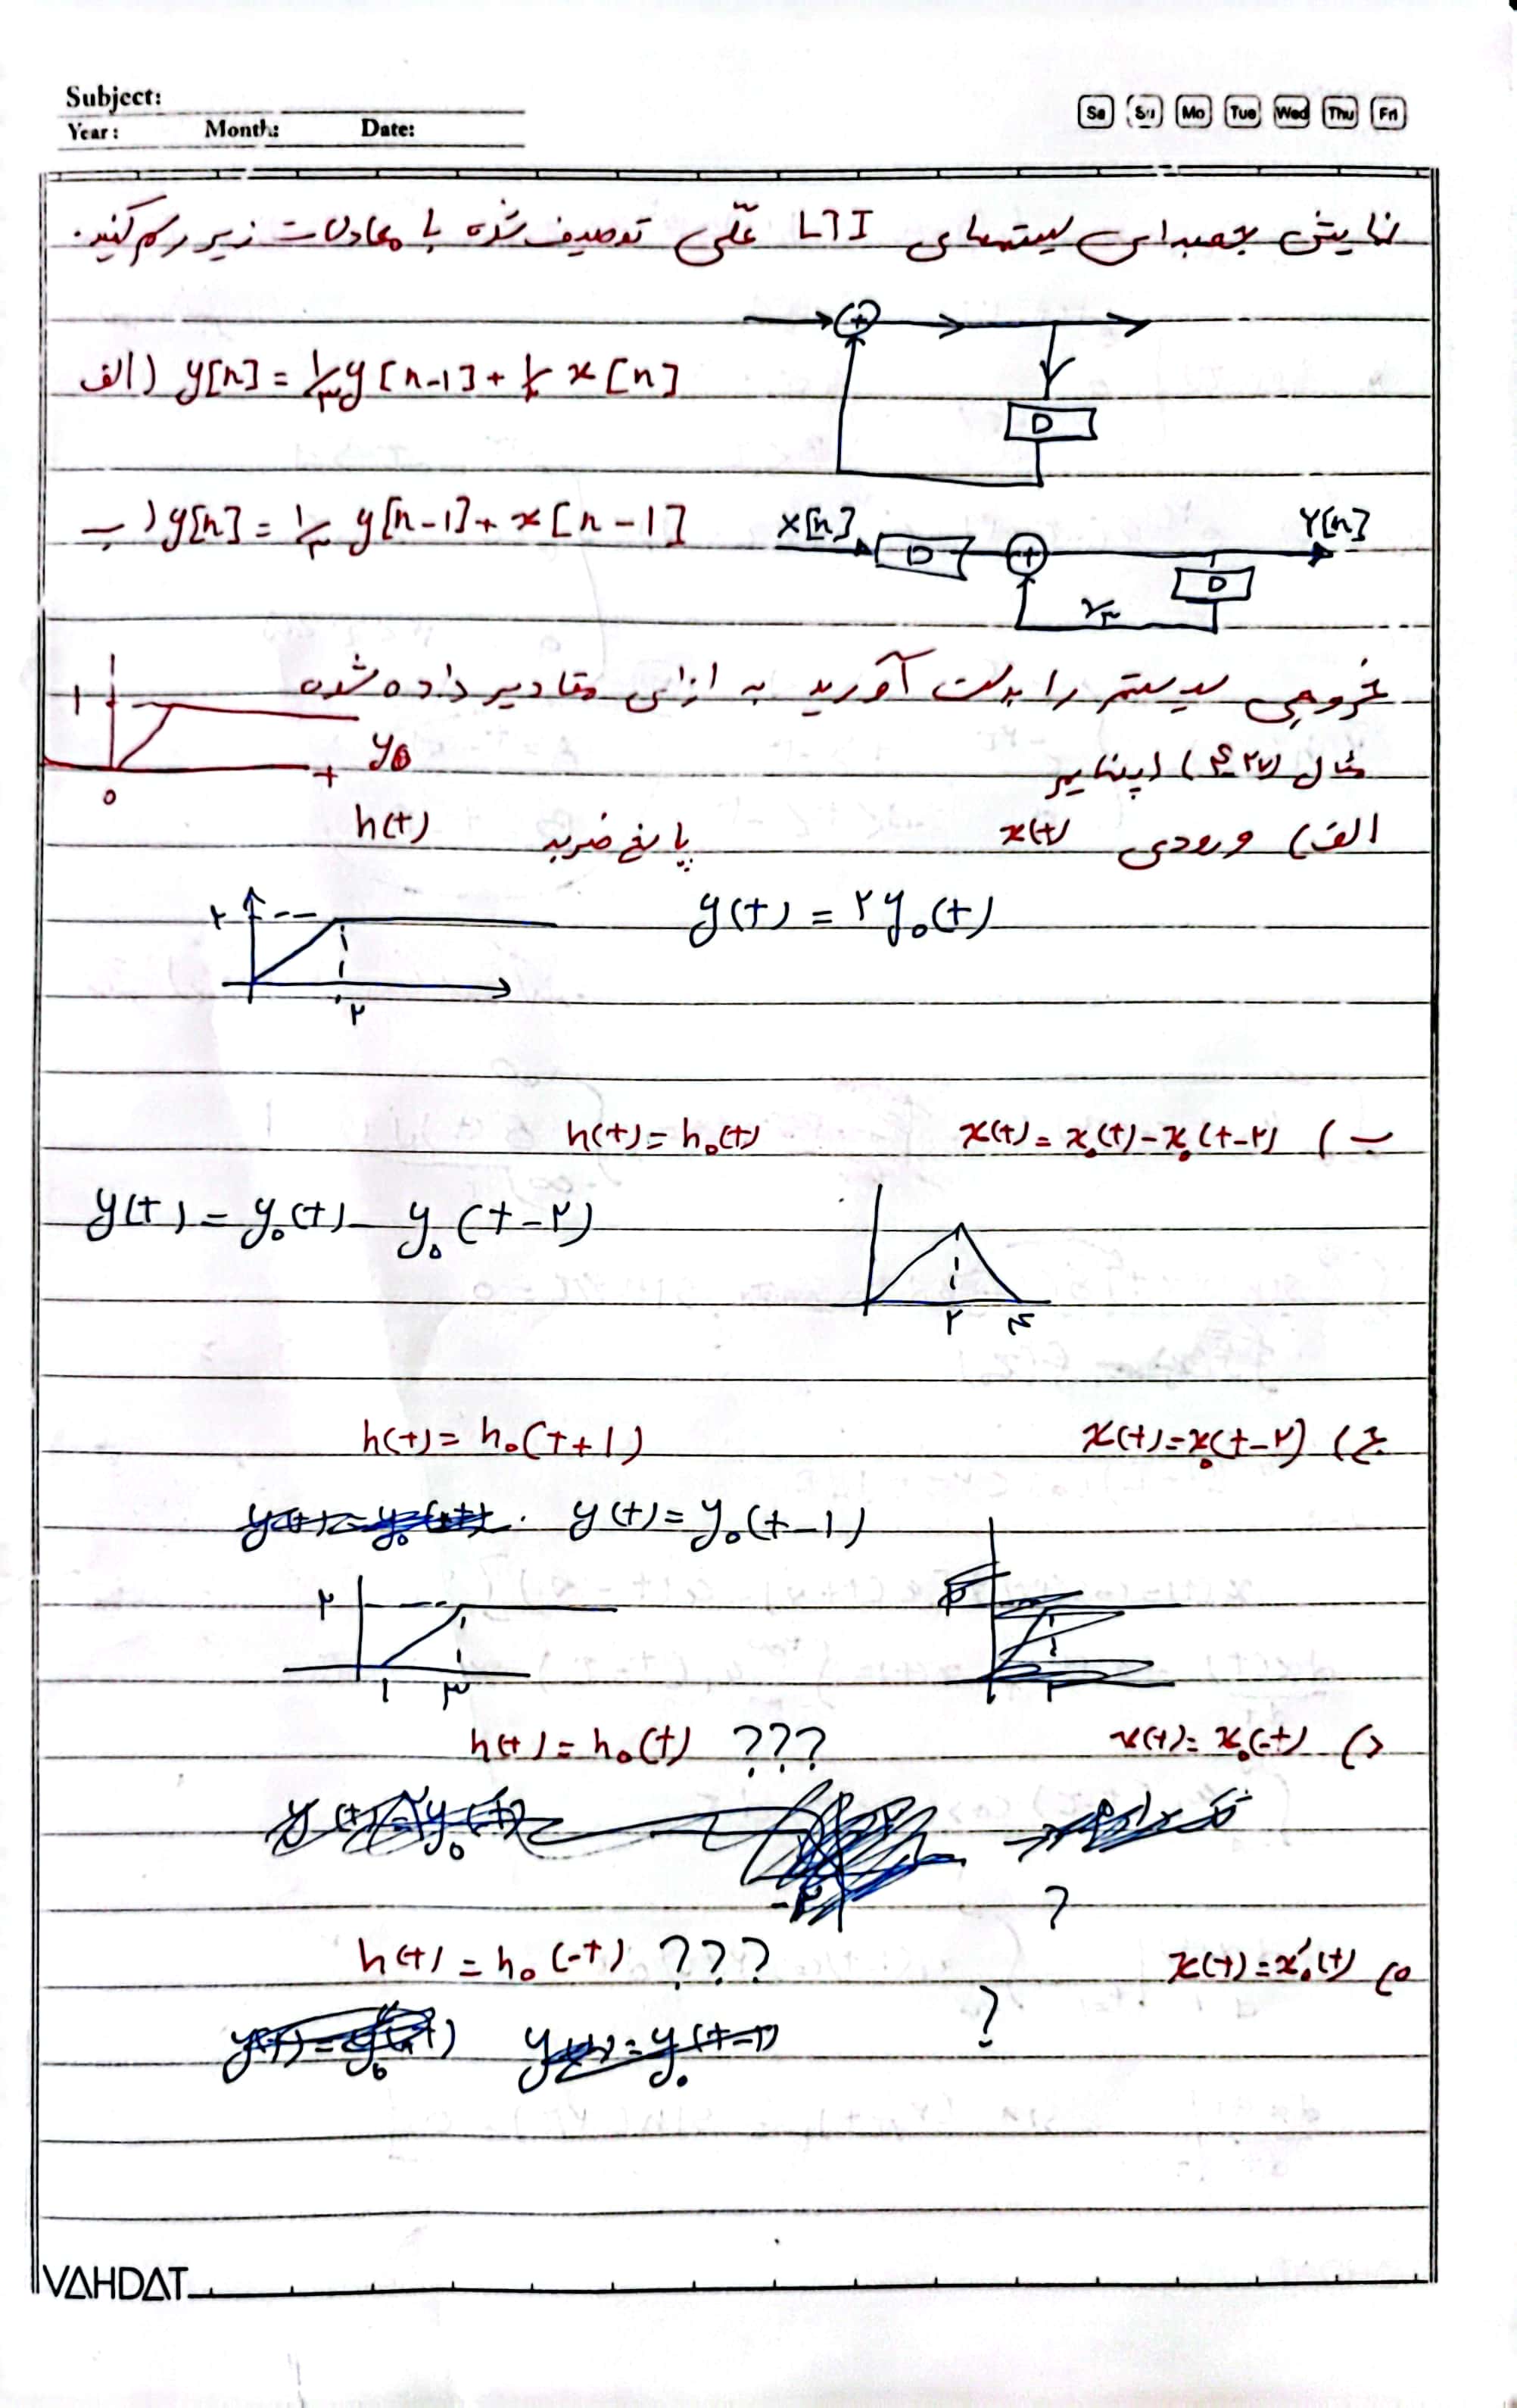 Subject:
Year: Month: Date:
Sa Su Mo Tue Wed Thu Fri
نمایش جعبه‌ای سیستمهای LTI علّی توصیف شده با معادلات زیر رسم کنید.
الف) y[n] = ۱/۳ y[n-1] + x[n]
D
ب) y[n] = ۱/۳ y[n-1] + x[n-1]
X[n] D + D Y[n]
خروجی سیستم را بدست آورید به ازای مقادیر داده شده
1 0 t y₀
اپنهایم
الف) ورودی x(t) پاسخ ضربه h(t)
y(t) = ۲y₀(t)
۲ ۲
ب) x(t) = x₀(t) - x₀(t-۲) h(t) = h₀(t)
y(t) = y₀(t) - y₀(t-۲)
۲ ۴
ج) x(t) = x₀(t-۲) h(t) = h₀(t+1)
y(t) = y₀(t-1)
۲ ۱ ۳
د) x(t) = x₀(-t) h(t) = h₀(t) ???
?
ه) x(t) = x₀′(t) h(t) = h₀(-t) ???
?
VAHDAT